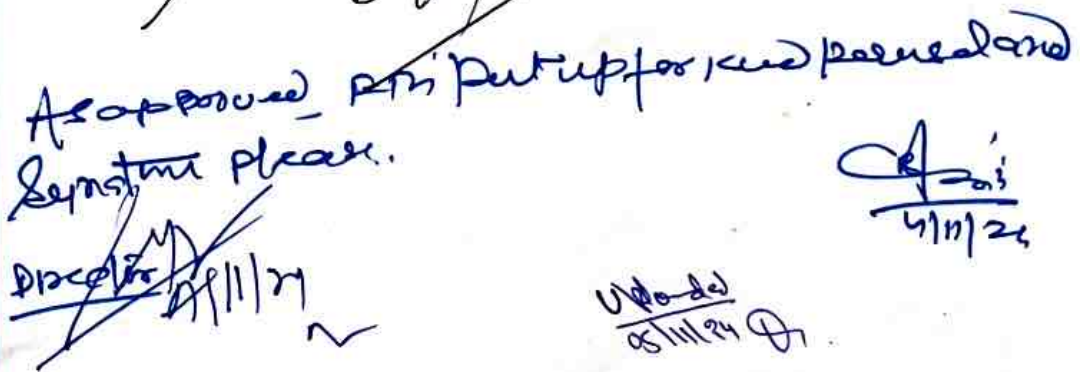 As approved put up for kind perusal and
Signature please.
4/11/24
Director
Uploaded
05/11/24